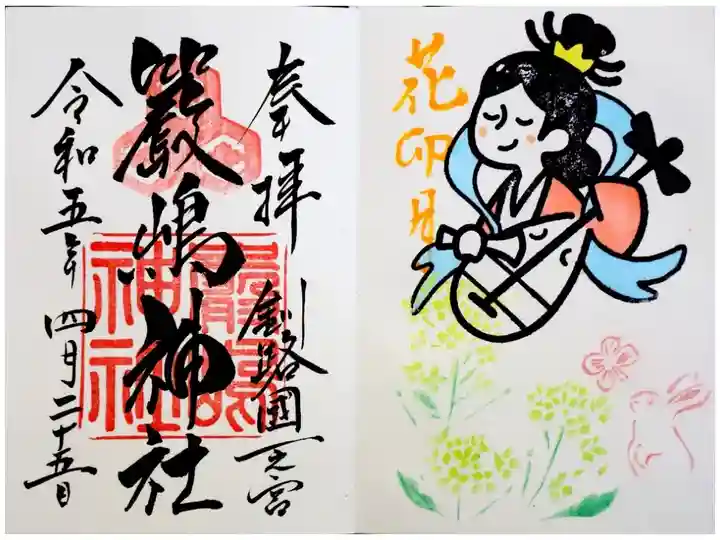 花卯月
奉拝
釧路國一之宮
嚴嶋神社
嚴嶋
神社
令和五年四月二十五日